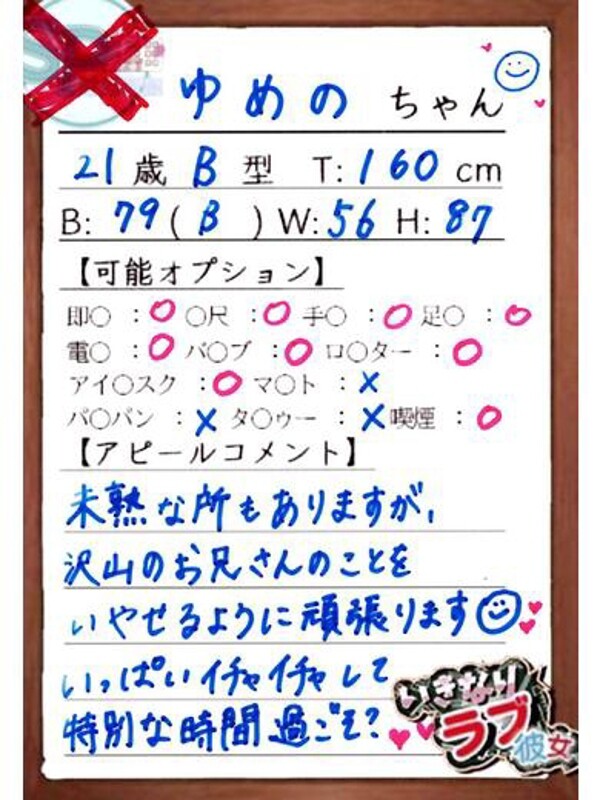 ゆめの ちゃん
21歳 B型 T:160cm
B: 79(B) W:56 H:87
【可能オプション】
即〇:○ 〇尺:○ 手〇:○ 足〇:○
電〇:○ バ〇ブ:○ ロ〇ター:○
アイ〇スク:○ マ〇ト:×
パ〇パン:× タ〇ゥー:× 喫煙:○
【アピールコメント】
未熟な所もありますが、
沢山のお兄さんのことを
いやせるように頑張ります
いっぱいイチャイチャして
特別な時間過ごそ?
いきなり
ラブ
彼女